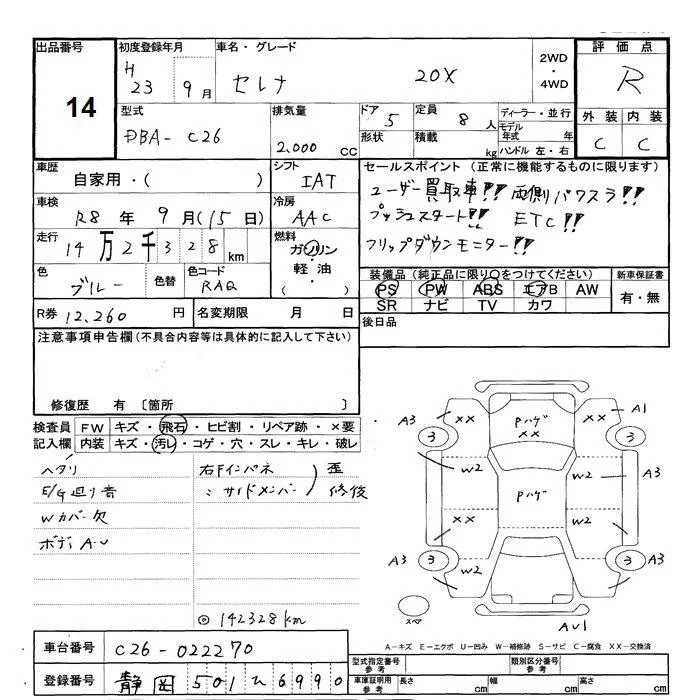 出品番号 初度登録年月 車名・グレード 2WD・4WD 評価点
14 H 23 9月 セレナ 20X R
型式 排気量 ドア 定員 ディーラー・並行 外装 内装
DBA-C26 2,000 cc 5 8人 モデル年式 年 C C
形状 積載 kg ハンドル 左・右
車歴 シフト セールスポイント (正常に機能するものに限ります)
自家用・( ) IAT ユーザー買取車!! 両側パワスラ!!
車検 冷房 プッシュスタート!! ETC!!
R8年9月(15日) AAC フリップダウンモニター!!
走行 燃料
14万2千328km ガソリン・軽油・( )
色 色替 色コード 装備品 (純正品に限り○をつけてください) 新車保証書
ブルー RAQ PS PW ABS エアB AW 有・無
SR ナビ TV カワ
R券 12,260円 名変期限 月 日 後日品
注意事項申告欄 (不具合内容等は具体的に記入して下さい)
修復歴 有 〔箇所 〕
検査員 FW キズ・飛石・ヒビ割・リペア跡・×要
記入欄 内装 キズ・汚レ・コゲ・穴・スレ・キレ・破レ
ヘタリ 右Fインパネ 歪
E/G廻り音 〃 サイドメンバー 修復
Wカバー欠
ボディA・U
◎142328km
A3 XX Pハゲ XX XX A1
3 3
W2 W2 A3
Pハゲ
XX W2
A3 3 W2 3 A3
スペア
AU1
A-キズ E-エクボ U-凹み W-補修跡 S-サビ C-腐食 XX-交換済
車台番号 C26-022270
型式指定番号 参考 類別区分番号 参考
登録番号 静岡 501 ひ 6990
車庫証明用 参考 長さ cm 幅 cm 高さ cm